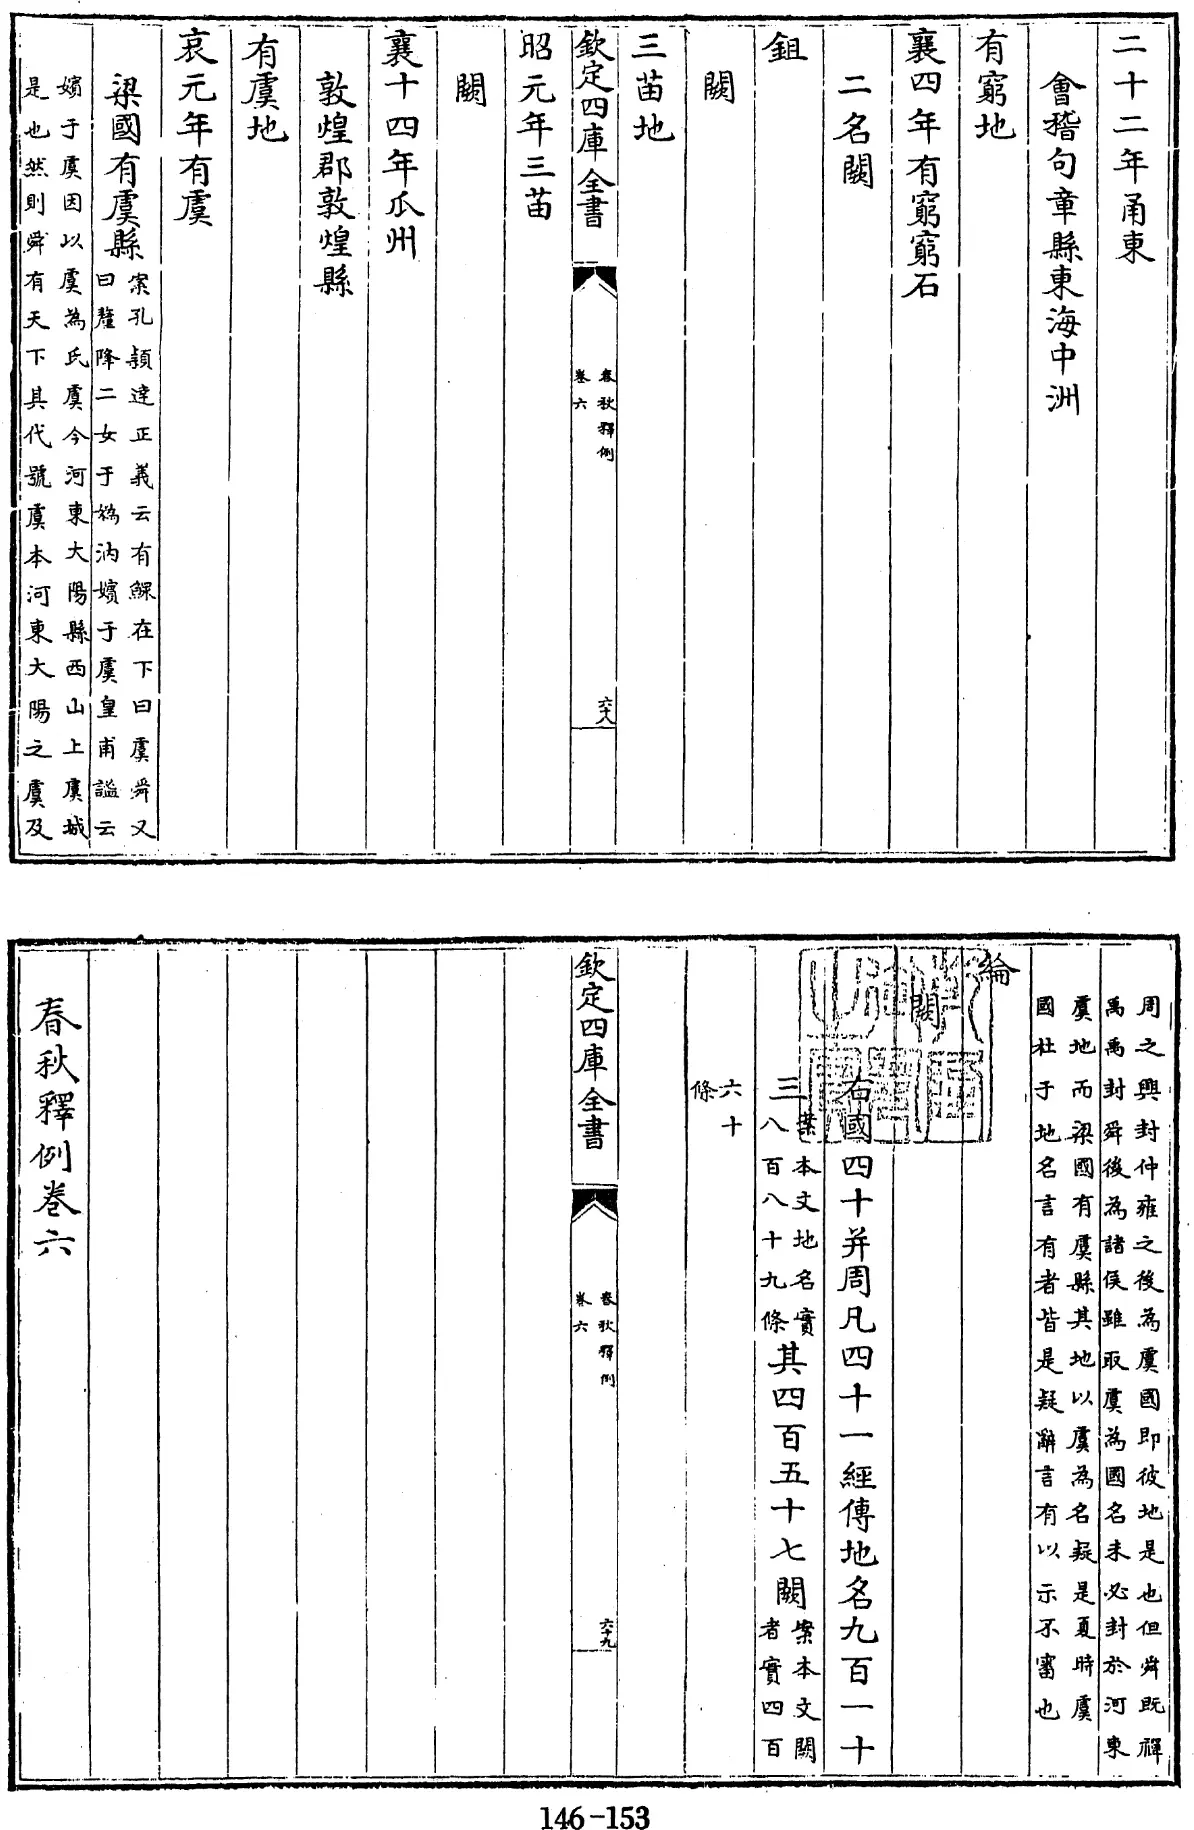 二十二年甬東
會稽句章縣東海中洲
有窮地
襄四年有窮窮石
二名闕
鉏
闕
三苗地
欽定四庫全書
春秋釋例
卷六
六十八
昭元年三苗
闕
襄十四年瓜州
敦煌郡敦煌縣
有虞地
哀元年有虞
梁國有虞縣
案孔穎達正義云有鰥在下曰虞舜又
曰釐降二女于媯汭嬪于虞皇甫謐云
嬪于虞因以虞為氏虞今河東大陽縣西山上虞城
是也然則舜有天下其代號虞本河東大陽之虞及
周之興封仲雍之後為虞國即彼地是也但舜既禪
禹禹封舜後為諸侯雖取虞為國名未必封於河東
虞地而梁國有虞縣其地以虞為名疑是夏時虞
國杜于地名言有者皆是疑辭言有以示不審也
綸
闕
右國四十并周凡四十一經傳地名九百一十
三
案本文地名實
八百八十九條
其四百五十七闕
案本文闕
者實四百
六十
條
欽定四庫全書
春秋釋例
卷六
六十九
春秋釋例卷六
146-153